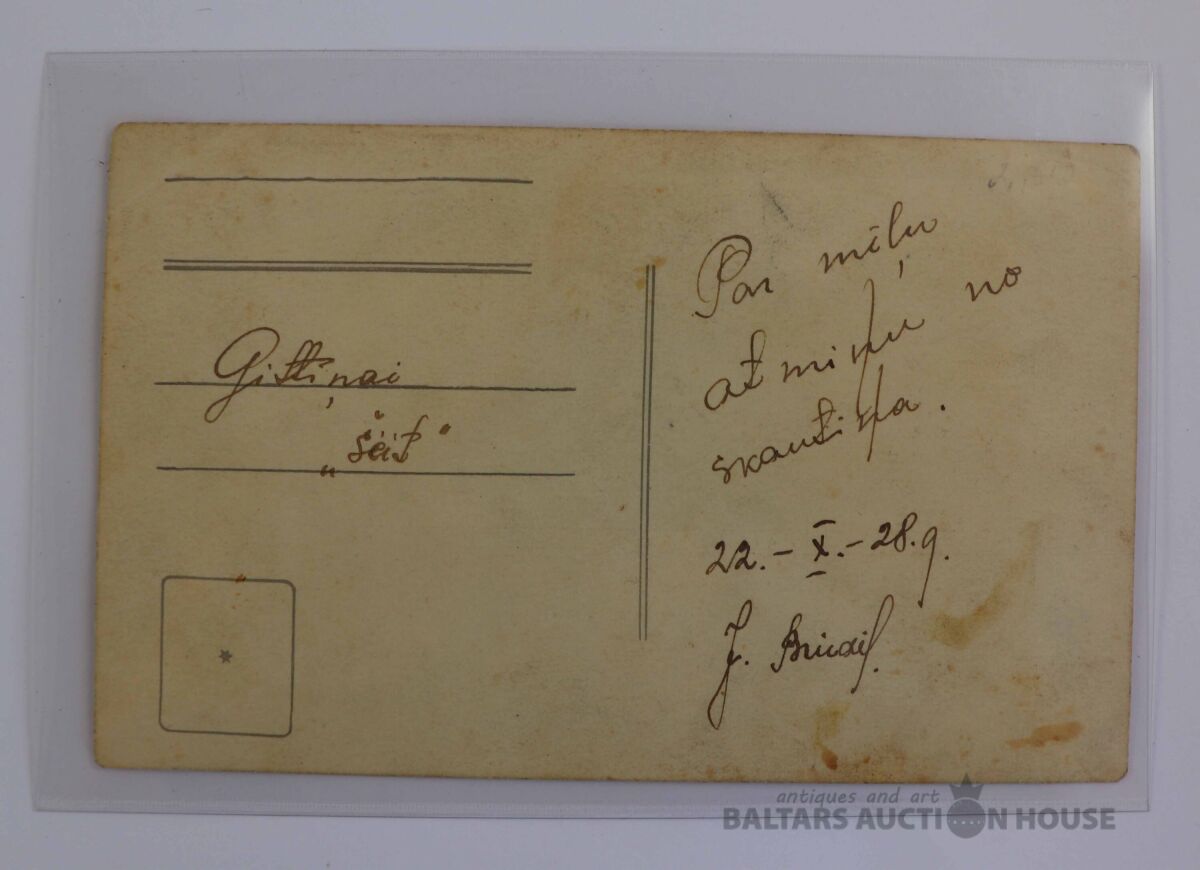 Gittiņai
„šeit"
Par mīļu
atmiņu no
skautiņa.
22.-X.-28.g.
J.
antiques and art
BALTARS AUCTION HOUSE